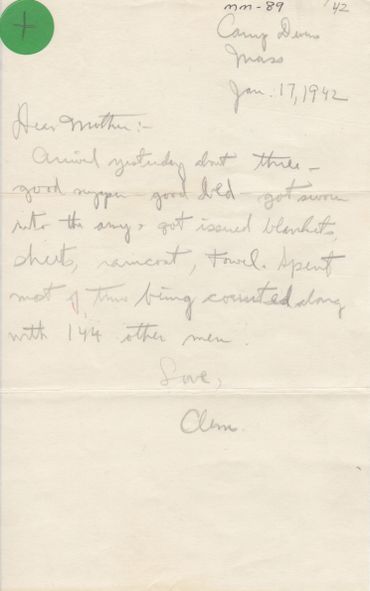 +
mm-89
42
Camp Devens
Mass
Jan. 17, 1942
Dear Mother:-
Arrived yesterday about three -
good supper good bed - got sworn
into the army & got issued blankets,
sheets, raincoat, towel. Spent
most of time being counted along
with 144 other men.
Love,
Clem.